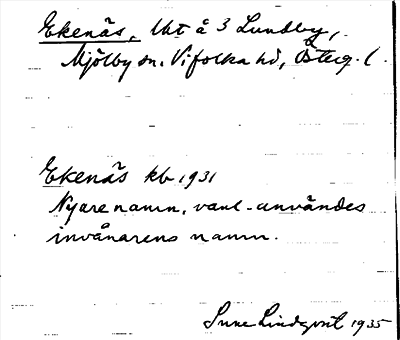 Ekenäs, Uht å 3 Lundby,
Mjölby sn. Vifolka hd, Östeg. l.
Ekenäs kb 1931
Nyare namn, vanl. användes
invånarens namn.
Sune Lindqvist 1935